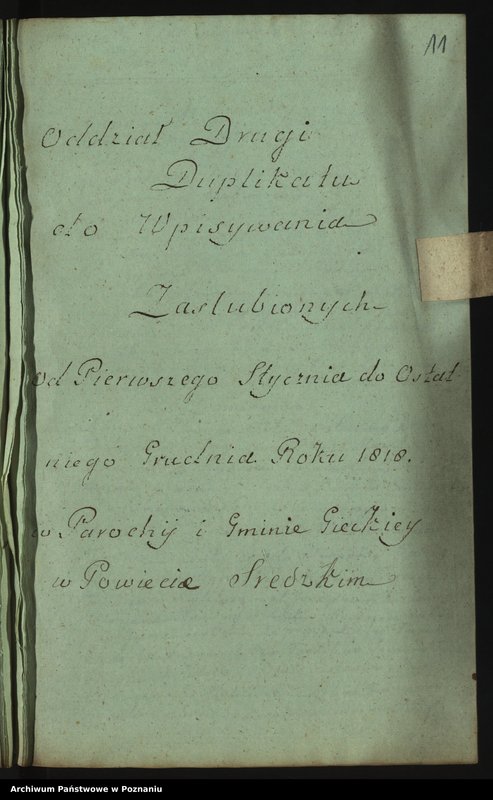 11
Oddział Drugi
Duplikatu
do Wpisywania
Zaslubionych
od Pierwszego Stycznia do Ostat-
niego Grudnia Roku 1818.
w Parochij i Gminie Gieckiey
w Powiecie Sredzkim
Archiwum Państwowe w Poznaniu